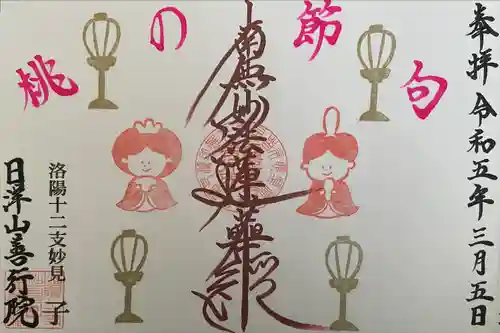 奉拝 令和五年三月五日
桃の節句
南無妙法蓮華経
洛陽十二支妙見 子
日洋山善行院